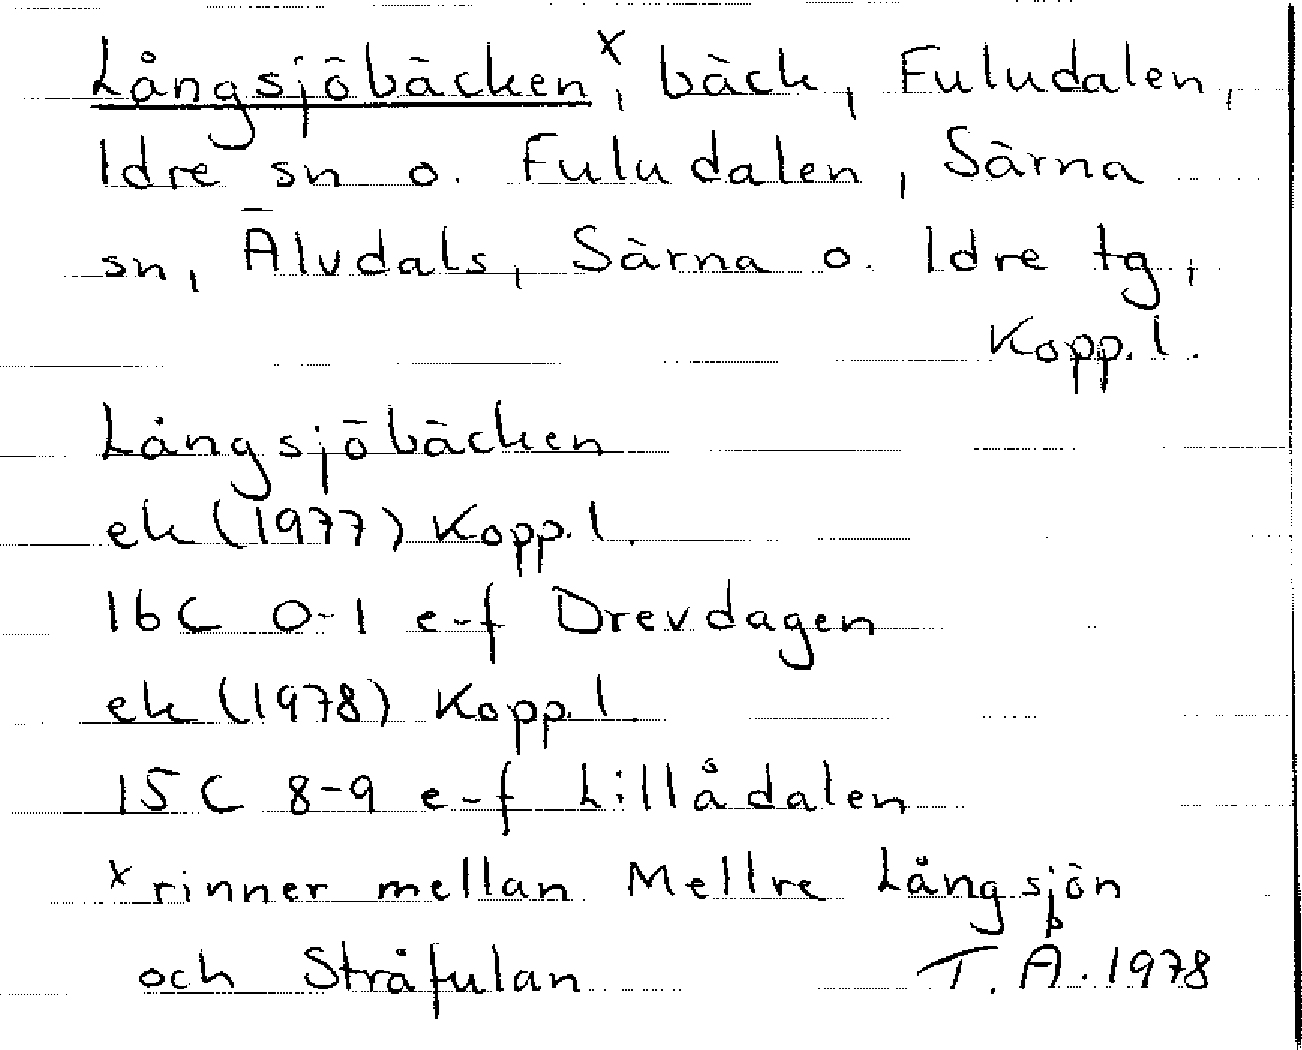 Långsjöbäcken x, bäck, Fuludalen,
Idre sn o. Fuludalen, Särna
sn, Älvdals, Särna o. Idre tg,
Kopp. l.
Långsjöbäcken
ek (1977) Kopp. l.
16C 0-1 e-f Drevdagen
ek (1978) Kopp. l.
15C 8-9 e-f Lillådalen
x rinner mellan Mellre Långsjön
och Stråfulan T. Å. 1978